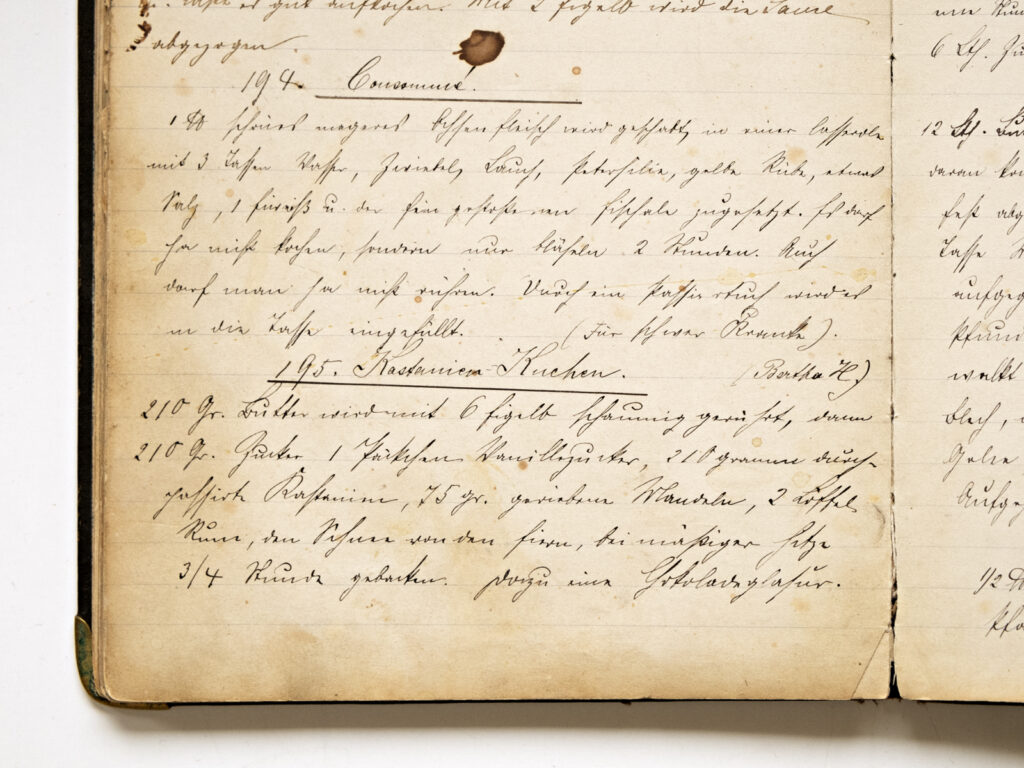 es gut aufkochen. Mit 2 Eigelb wird die Sauce
abgezogen.
194. Consommé.
1 ℔ schönes mageres Ochsenfleisch wird geschabt, in einer Casserole
mit 3 Tassen Wasser, Zwiebel, Lauch, Petersilie, gelbe Rübe, etwas
Salz, 1 Eiweiß u. der fein gestoßenen Eischale zugesetzt. Es darf
ja nicht kochen, sondern nur 2 Stunden. Auch
darf man ja nicht rühren. Durch ein Passiertuch wird es
in die Tasse eingefüllt. (Für schwer Kranke).
195. Kastanien-Kuchen. (Bertha H.)
210 Gr. Butter wird mit 6 Eigelb schaumig gerührt, dann
210 Gr. Zucker 1 Päckchen Vanillezucker, 210 gramm durch-
passirte Kastanien, 75 gr. geriebene Mandeln, 2 Löffel
Rum, den Schnee von den Eiern, bei mäßiger Hitze
3/4 Stunde gebacken. Dazu eine Chokoladeglasur.
6 Lth.
12 Lth.
daran
fest
Tasse
Pfund
Blech,
1/2 ℔